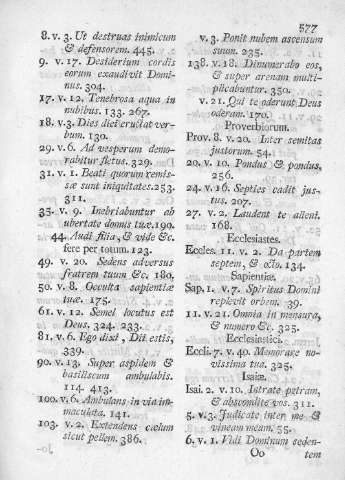 577
8. v. 3. Ut destruas inimicum
& defensorem. 445.
9. v. 17. Desiderium cordis
eorum exaudivit Domi-
nus. 304.
17. v. 12. Tenebrosa aqua in
nubibus. 133. 267.
18. v. 3. Dies diei eructat ver-
bum. 130.
29. v. 6. Ad vesperum demo-
rabitur fletus. 329.
31. v. 1. Beati quorum remis-
sæ sunt iniquitates. 253.
311.
35. v. 9. Inebriabuntur ab
ubertate domus tuæ. 190.
44. Audi filia, & vide &c.
fere per totum. 123.
49. v. 20. Sedens adversus
fratrem tuum &c. 180.
50. v. 8. Occulta sapientiæ
tuæ. 175.
61. v. 12. Semel locutus est
Deus. 324. 233.
81. v. 6. Ego dixi, Dii estis,
339.
90. v. 13. Super aspidem &
basiliscum ambulabis.
114. 413.
100. v. 6. Ambulans in via im-
maculata. 141.
103. v. 2. Extendens cœlum
sicut pellem. 386.
v. 3. Ponit nubem ascensum
suum. 235.
138. v. 18. Dinumerabo eos,
& super arenam multi-
plicabuntur. 350.
v. 21. Qui te oderunt Deus
oderam. 170.
Proverbiorum.
Prov. 8. v. 20. Inter semitas
justorum. 54.
20. v. 10. Pondus & pondus,
256.
24. v. 16. Septies cadit jus-
tus. 207.
27. v. 2. Laudent te alieni.
168.
Ecclesiastes.
Eccles. 11. v. 2. Da partem
septem, & octo. 134.
Sapientiæ.
Sap. 1. v. 7. Spiritus Domini
replevit orbem. 39.
11. v. 21. Omnia in mensura,
& numero &c. 325.
Ecclesiastici.
Eccli. 7. v. 40. Memorare no-
vissima tua. 325.
Isaiæ.
Isai. 2. v. 10. Intrate petram,
& abscondite vos. 311.
5. v. 3. Judicate inter me &
vineam meam. 55.
6. v. 1. Vidi Dominum seden-
Oo tem